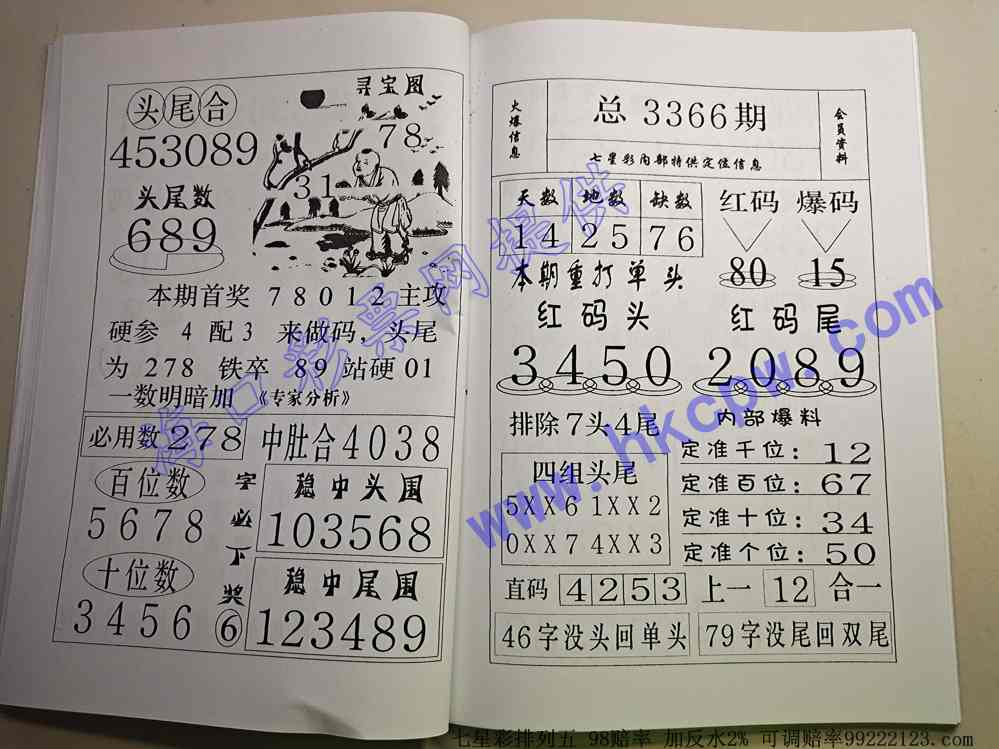 头尾合
453089
头尾数
689
寻宝图
78
31
本期首奖 78012 主攻
硬参 4 配 3 来做码，头尾
为 278 铁卒 89 站硬 01
一数明暗加 《专家分析》
必用数 278 中肚合 4038
百位数
5678
十位数
3456
字必下奖⑥
稳中头围
103568
稳中尾围
123489
火爆信息
总 3366 期
七星彩内部特供定位信息
会员资料
天数 地数 缺数
14 25 76
红码 爆码
80 15
本期重打单头
红码头
3450
红码尾
2089
排除7头4尾
四组头尾
5XX6 1XX2
0XX7 4XX3
内部爆料
定准千位：12
定准百位：67
定准十位：34
定准个位：50
直码 4253 上一 12 合一
46字没头回单头
79字没尾回双尾
海口彩票网提供
www.hkcpw.com
七星彩排列五 98赔率 加反水2% 可调赔率99222123.com